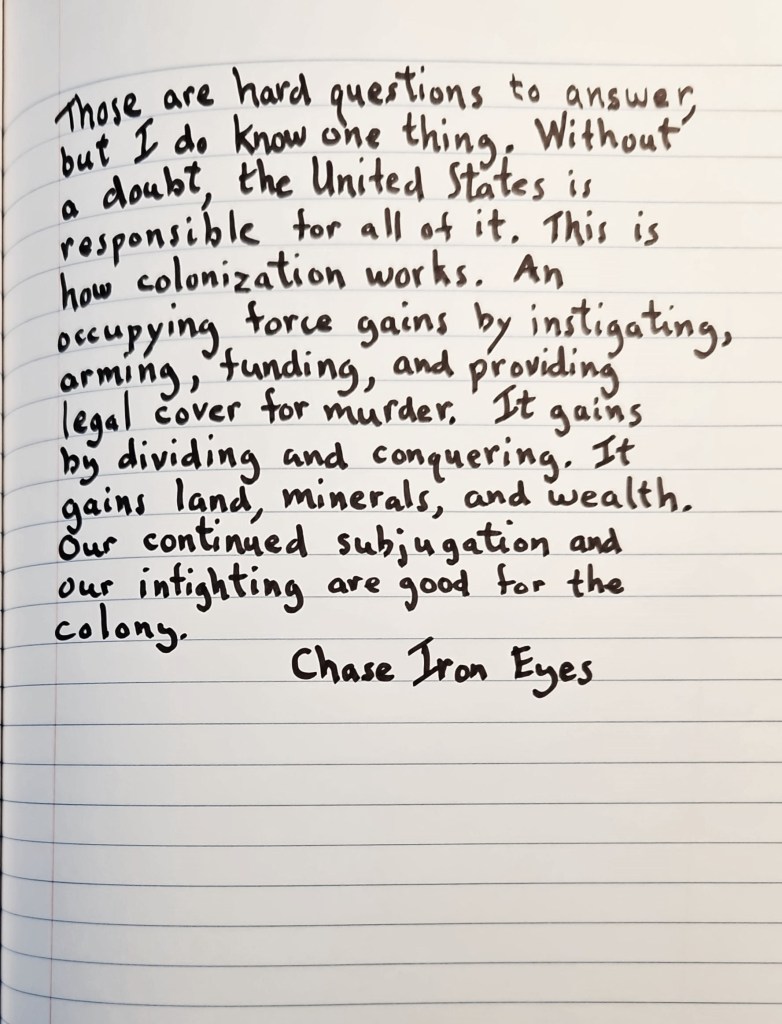 Those are hard questions to answer,
but I do know one thing. Without
a doubt, the United States is
responsible for all of it. This is
how colonization works. An
occupying force gains by instigating,
arming, funding, and providing
legal cover for murder. It gains
by dividing and conquering. It
gains land, minerals, and wealth.
Our continued subjugation and
our infighting are good for the
colony.
Chase Iron Eyes